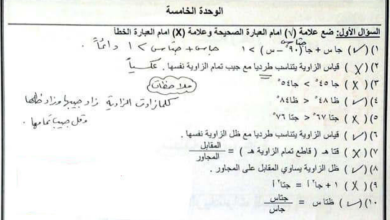 الوحدة الخامسة
السؤال الأول: ضع علامة (√) امام العبارة الصحيحة وعلامة (X) امام العبارة الخطأ
(✓) ١) جا س + جا (٩٠° – س) > ١ جاس + جتاس > ١ دائمًا
(X) ٢) قياس الزاوية يتناسب طرديا مع جيب تمام الزاوية نفسها. عكسيًا
(X) ٣) جا٤٥° > جا٥٤°
(✓) ٤) ظا٤٨° > ظا٨٤°
(X) ٥) جتا٦٧° < جتا٧٦°
(✓) ٦) قياس الزاوية يتناسب طرديا مع ظل الزاوية نفسها.
(X) ٧) قتا هـ (قاطع تمام الزاوية هـ) = المقابل / المجاور
(✓) ٨) ظل الزاوية يساوي المقابل على المجاور.
(X) ٩) ١ + جا٢ أ = جتا٢ أ
(✓) ١٠) ظتا س = جتاس / جاس
ملاحظات
كلما زادت الزاوية زاد جيبها وزاد ظلها
وقل جيب تمامها.